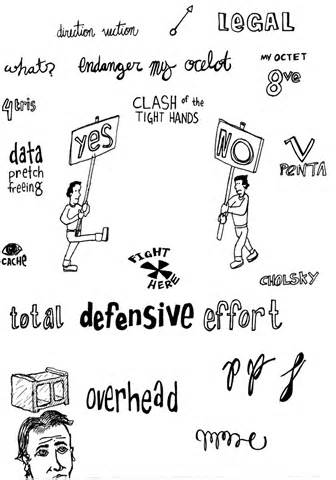 direction suction
LEGAL
what?
endanger my ocelot
MY OCTET
8ve
4tris
CLASH of the
TIGHT HANDS
YES
NO
V
PENTA
data
pretch
freeing
CACHE
FIGHT
HERE
CHOLSKY
total defensive effort
pp f
overhead
more